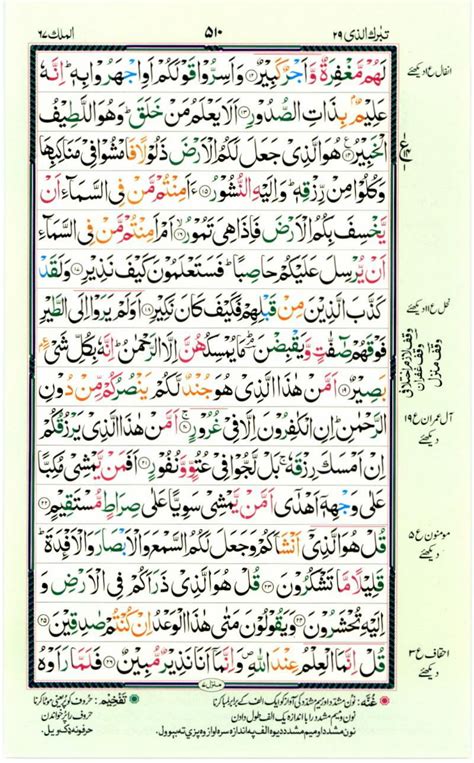 تبٰرك الذی ۲۹
۵۱۰
الملك ۶۷
لَهُمْ مَّغْفِرَةٌ وَّاَجْرٌ كَبِيْرٌ ۝۱۲ وَاَسِرُّوْا قَوْلَكُمْ اَوِ اجْهَرُوْا بِهٖ ؕ اِنَّهٗ
عَلِيْمٌۢ بِذَاتِ الصُّدُوْرِ ۝۱۳ اَلَا يَعْلَمُ مَنْ خَلَقَ ؕ وَهُوَ اللَّطِيْفُ
الْخَبِيْرُ ۝۱۴ هُوَ الَّذِيْ جَعَلَ لَكُمُ الْاَرْضَ ذَلُوْلًا فَامْشُوْا فِيْ مَنَاكِبِهَا
وَكُلُوْا مِنْ رِّزْقِهٖ ؕ وَاِلَيْهِ النُّشُوْرُ ۝۱۵ ءَاَمِنْتُمْ مَّنْ فِي السَّمَآءِ اَنْ
يَّخْسِفَ بِكُمُ الْاَرْضَ فَاِذَا هِيَ تَمُوْرُ ۝۱۶ اَمْ اَمِنْتُمْ مَّنْ فِي السَّمَآءِ
اَنْ يُّرْسِلَ عَلَيْكُمْ حَاصِبًا ؕ فَسَتَعْلَمُوْنَ كَيْفَ نَذِيْرِ ۝۱۷ وَلَقَدْ
كَذَّبَ الَّذِيْنَ مِنْ قَبْلِهِمْ فَكَيْفَ كَانَ نَكِيْرِ ۝۱۸ اَوَلَمْ يَرَوْا اِلَى الطَّيْرِ
فَوْقَهُمْ صٰٓفّٰتٍ وَّيَقْبِضْنَ ؔۘ مَا يُمْسِكُهُنَّ اِلَّا الرَّحْمٰنُ ؕ اِنَّهٗ بِكُلِّ شَيْءٍۭ
بَصِيْرٌ ۝۱۹ اَمَّنْ هٰذَا الَّذِيْ هُوَ جُنْدٌ لَّكُمْ يَنْصُرُكُمْ مِّنْ دُوْنِ
الرَّحْمٰنِ ؕ اِنِ الْكٰفِرُوْنَ اِلَّا فِيْ غُرُوْرٍ ۝۲۰ اَمَّنْ هٰذَا الَّذِيْ يَرْزُقُكُمْ
اِنْ اَمْسَكَ رِزْقَهٗ ۚ بَلْ لَّجُّوْا فِيْ عُتُوٍّ وَّنُفُوْرٍ ۝۲۱ اَفَمَنْ يَّمْشِيْ مُكِبًّا
عَلٰى وَجْهِهٖٓ اَهْدٰٓى اَمَّنْ يَّمْشِيْ سَوِيًّا عَلٰى صِرَاطٍ مُّسْتَقِيْمٍ ۝۲۲
قُلْ هُوَ الَّذِيْٓ اَنْشَاَكُمْ وَجَعَلَ لَكُمُ السَّمْعَ وَالْاَبْصَارَ وَالْاَفْـِٕدَةَ ؕ
قَلِيْلًا مَّا تَشْكُرُوْنَ ۝۲۳ قُلْ هُوَ الَّذِيْ ذَرَاَكُمْ فِي الْاَرْضِ وَ
اِلَيْهِ تُحْشَرُوْنَ ۝۲۴ وَيَقُوْلُوْنَ مَتٰى هٰذَا الْوَعْدُ اِنْ كُنْتُمْ صٰدِقِيْنَ ۝۲۵
قُلْ اِنَّمَا الْعِلْمُ عِنْدَ اللّٰهِ ۪ وَاِنَّمَآ اَنَا نَذِيْرٌ مُّبِيْنٌ ۝۲۶ فَلَمَّا رَاَوْهُ
انفال ع۱ دیکھئے
نحل ع۱۱ دیکھئے
وقف منزل
آل عمران ع۱۹
دیکھئے
مومنون ع۵
دیکھئے
احقاف ع۳
دیکھئے
منزل ۷
غُنّه: نون مشدد اور میم مشدد کی آواز کو ایک الف کے برابر لمبا کرنا
تفخیم: حروف کو پُر یعنی موٹا کرنا